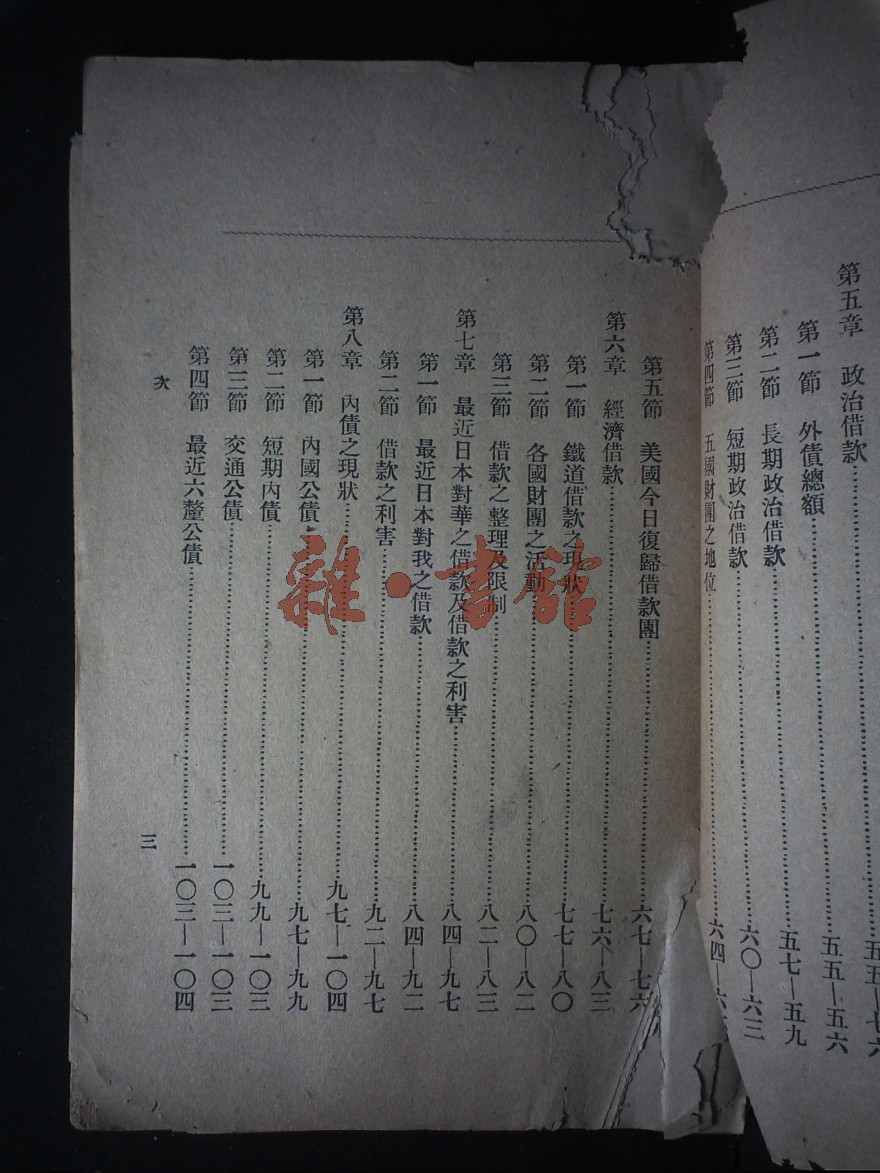 第五章　政治借款……五五—七六
第一節　外債總額……五五—五六
第二節　長期政治借款……五七—五九
第三節　短期政治借款……六〇—六三
第四節　五國財團之地位……六四—六
第五節　美國今日復歸借款團……六七—七六
第六章　經濟借款……七六—八三
第一節　鐵道借款之現狀……七七—八〇
第二節　各國財團之活動……八〇—八二
第三節　借款之整理及限制……八二—八三
第七章　最近日本對華之借款及借款之利害……八四—九七
第一節　最近日本對我之借款……八四—九二
第二節　借款之利害……九二—九七
第八章　內債之現狀……九七—一〇四
第一節　內國公債……九七—九九
第二節　短期內債……九九—一〇三
第三節　交通公債……一〇三—一〇三
第四節　最近六釐公債……一〇三—一〇四
次　三
雜·書館